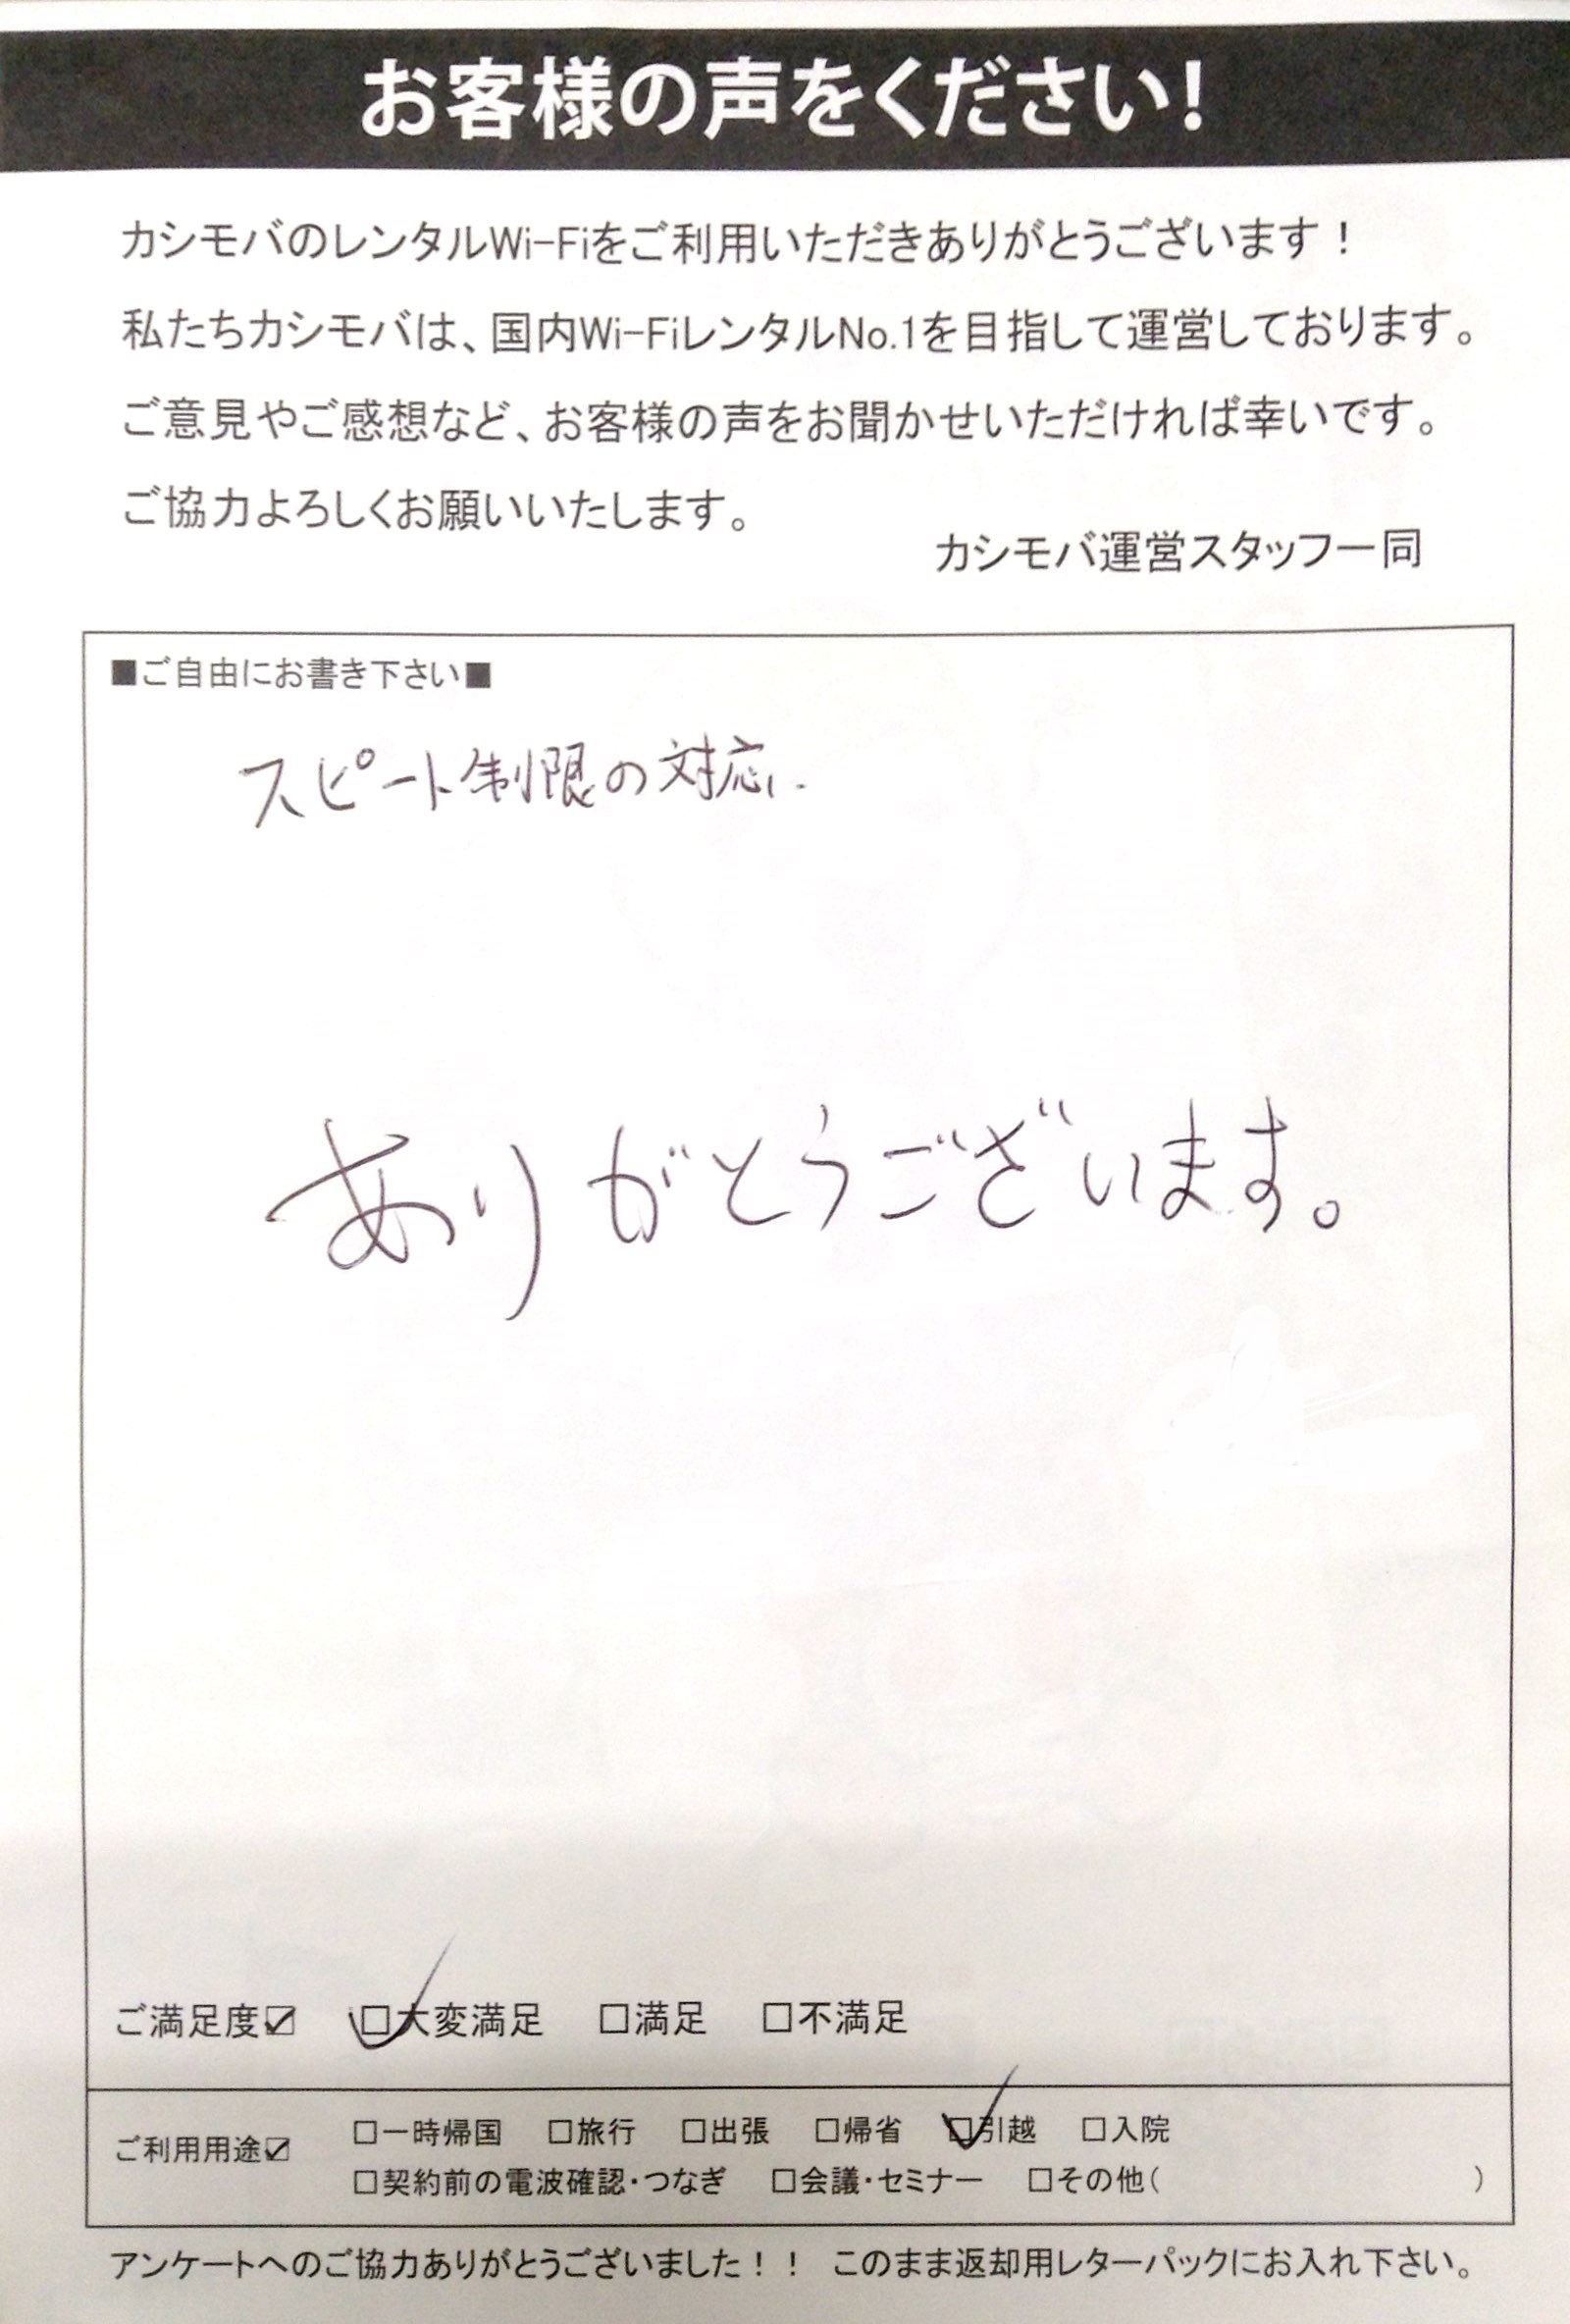 お客様の声をください!
カシモバのレンタルWi-Fiをご利用いただきありがとうございます！
私たちカシモバは、国内Wi-FiレンタルNo.1を目指して運営しております。
ご意見やご感想など、お客様の声をお聞かせいただければ幸いです。
ご協力よろしくお願いいたします。
カシモバ運営スタッフ一同
■ご自由にお書き下さい■
スピート制限の対応、
ありがとうございます。
ご満足度☑ □大変満足 □満足 □不満足
ご利用用途☑ □一時帰国 □旅行 □出張 □帰省 □引越 □入院
□契約前の電波確認・つなぎ □会議・セミナー □その他( )
アンケートへのご協力ありがとうございました！！ このまま返却用レターパックにお入れ下さい。